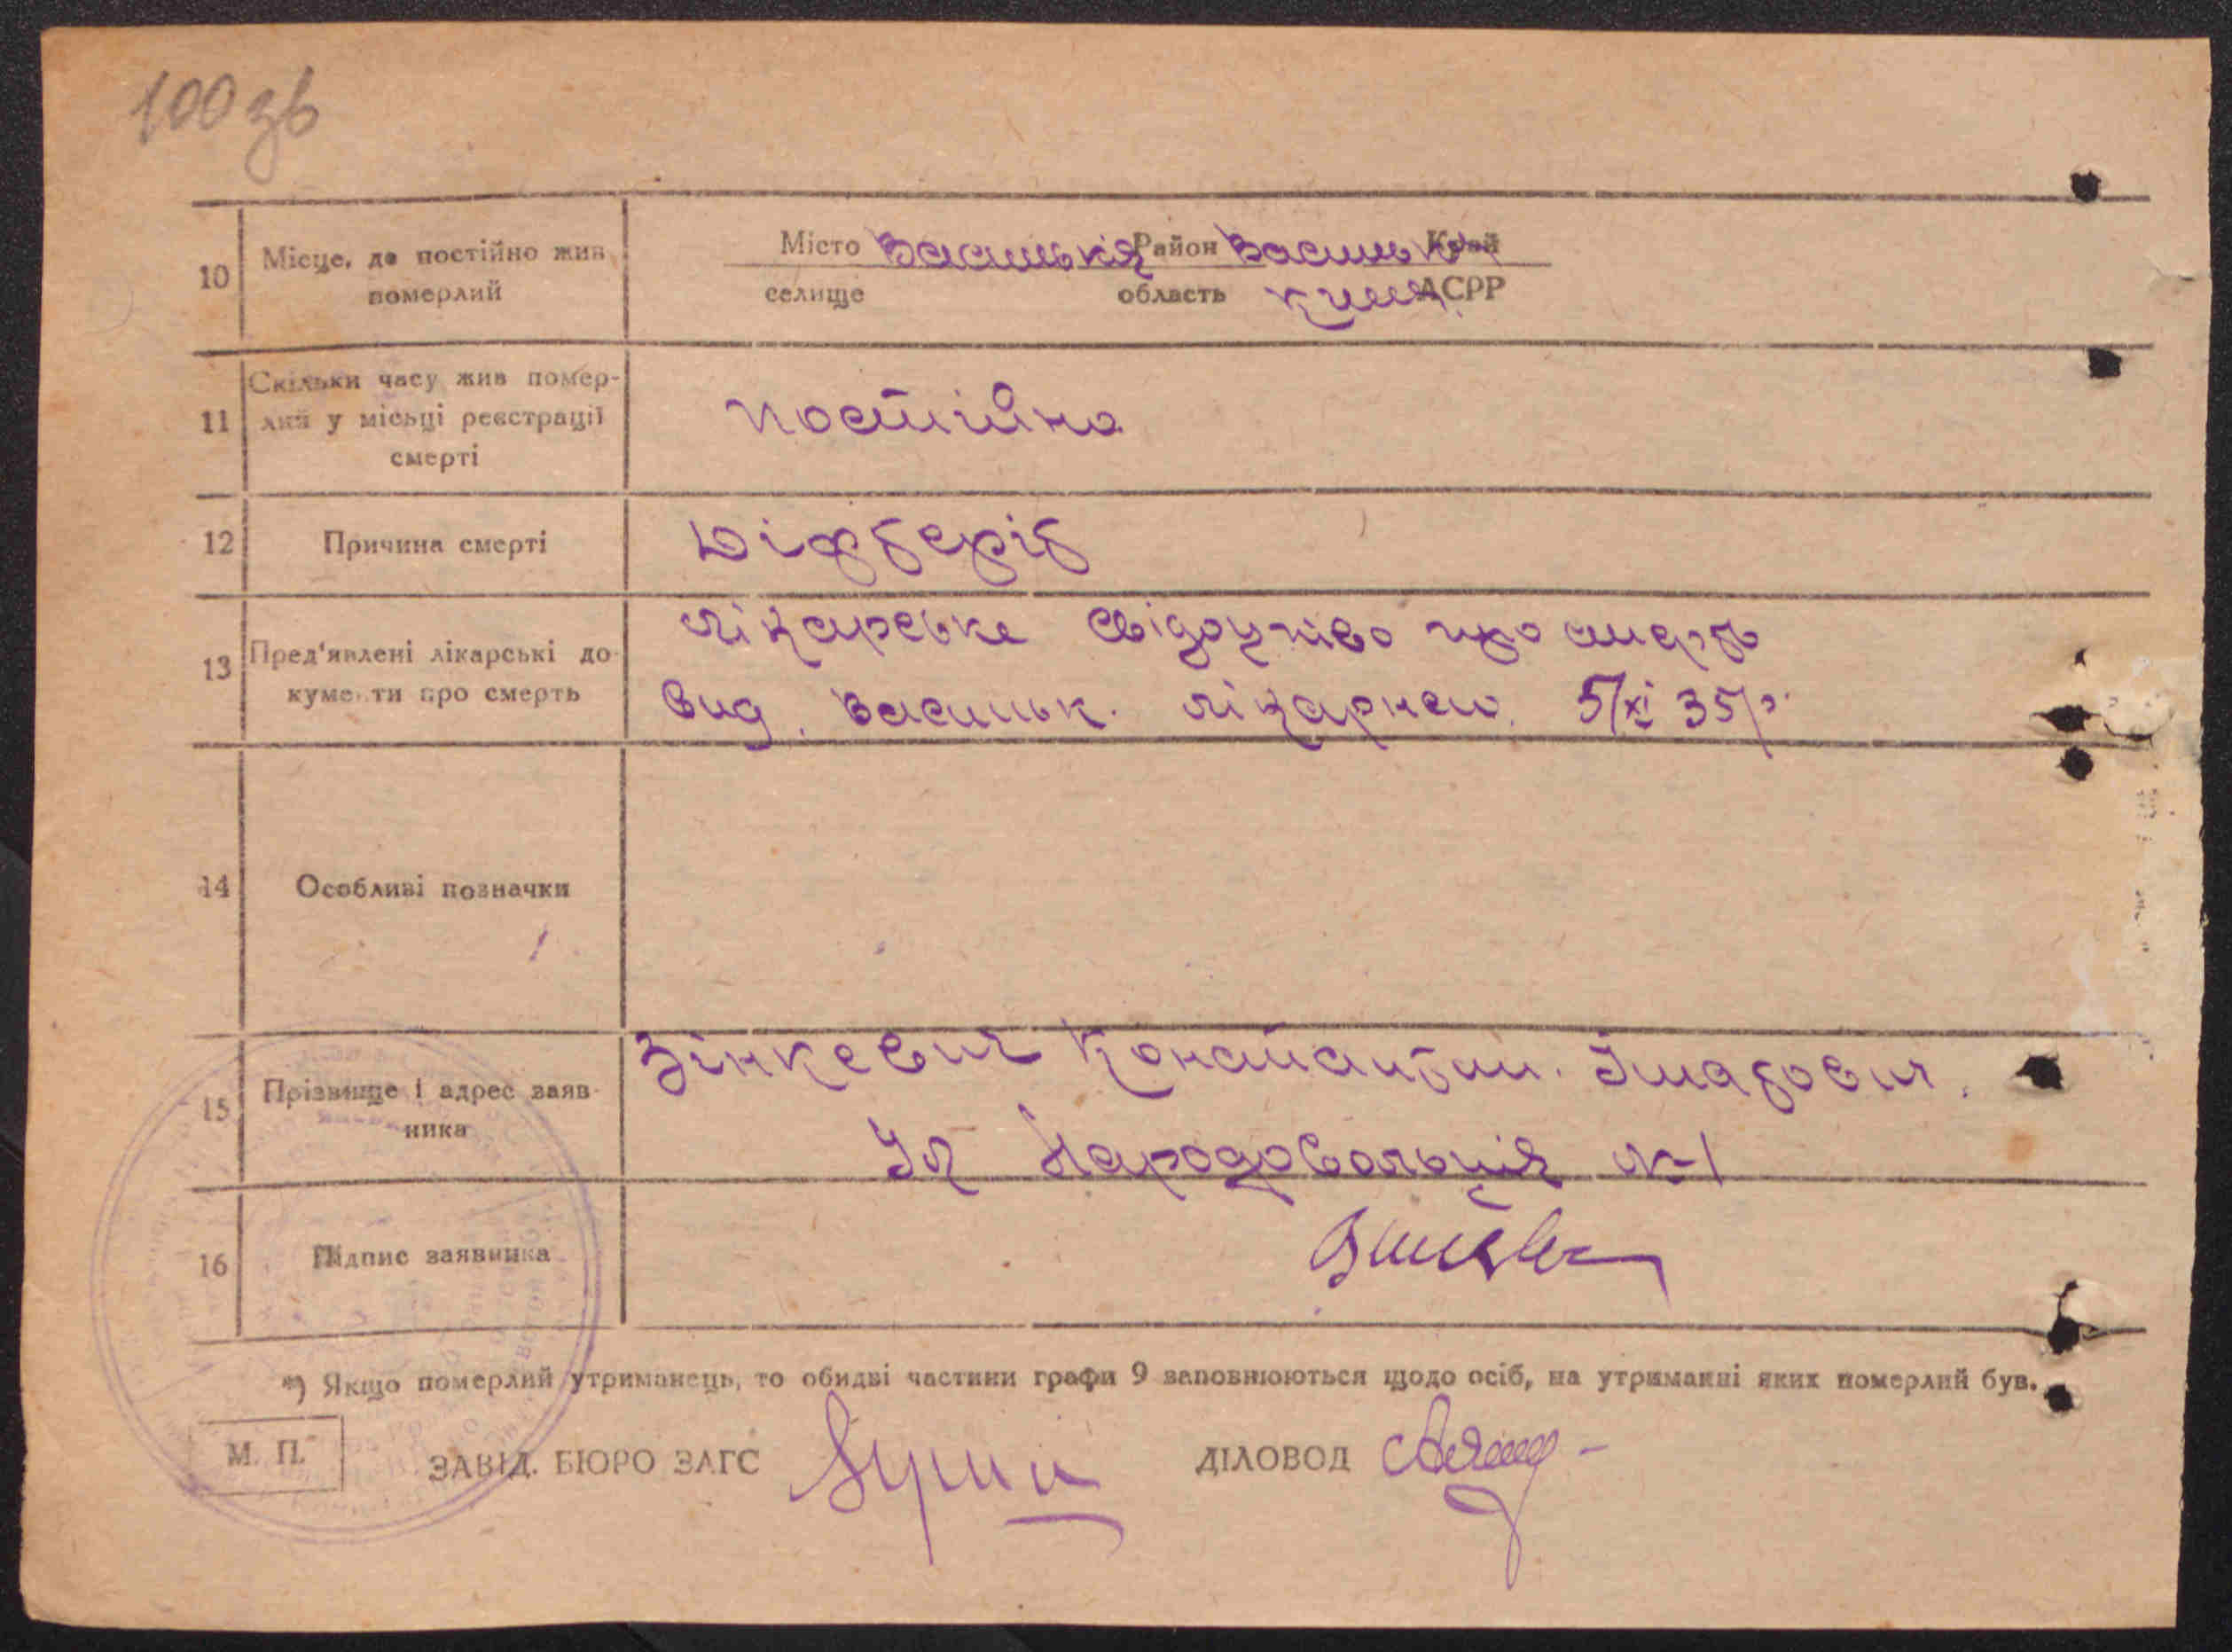 100 зв
10 Місце, де постійно жив померлий
Місто Васильків Район Васильк Край
селище область Київ. АСРР
11 Скільки часу жив помер-
лий у місьці реєстрації
смерті
постійно
12 Причина смерті
Діфтеріт
13 Пред'явлені лікарські до-
кументи про смерть
лікарське свідоцтво про смерть
вид. Васильк. лікарнею. 5/XI 35 р.
14 Особливі позначки
15 Прізвище і адрес заяв-
ника
Зінкевич Константин. Ігнатович.
Ул Народовольців № 1
16 Підпис заявника
*) Якщо померлий утриманець, то обидві частини графи 9 заповнюються щодо осіб, на утриманні яких померлий був.
М. П. ЗАВІД. БЮРО ЗАГС ДІЛОВОД